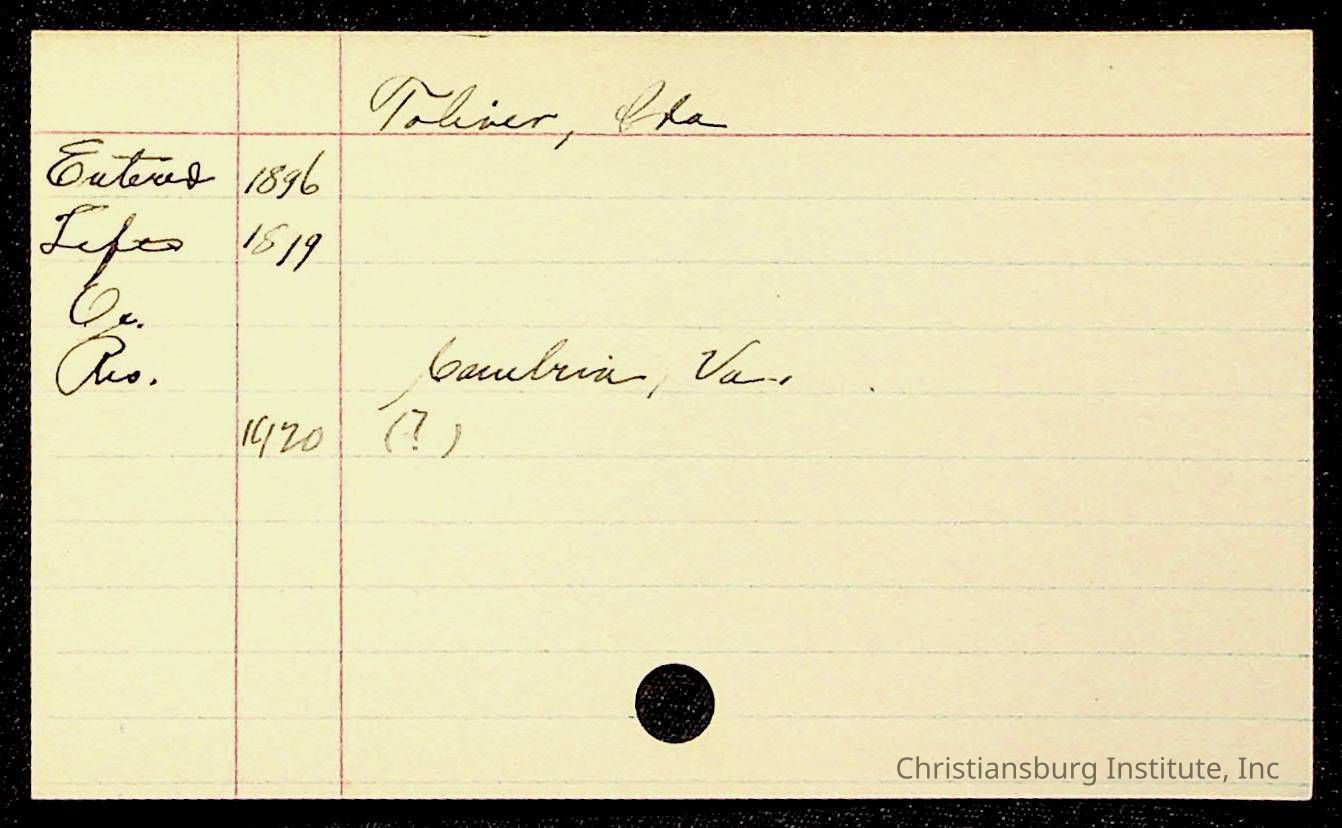 Toliver, Ida
Entered 1896
Left 1899
Oc.
Res. Cambria, Va.
1920 (?)
Christiansburg Institute, Inc